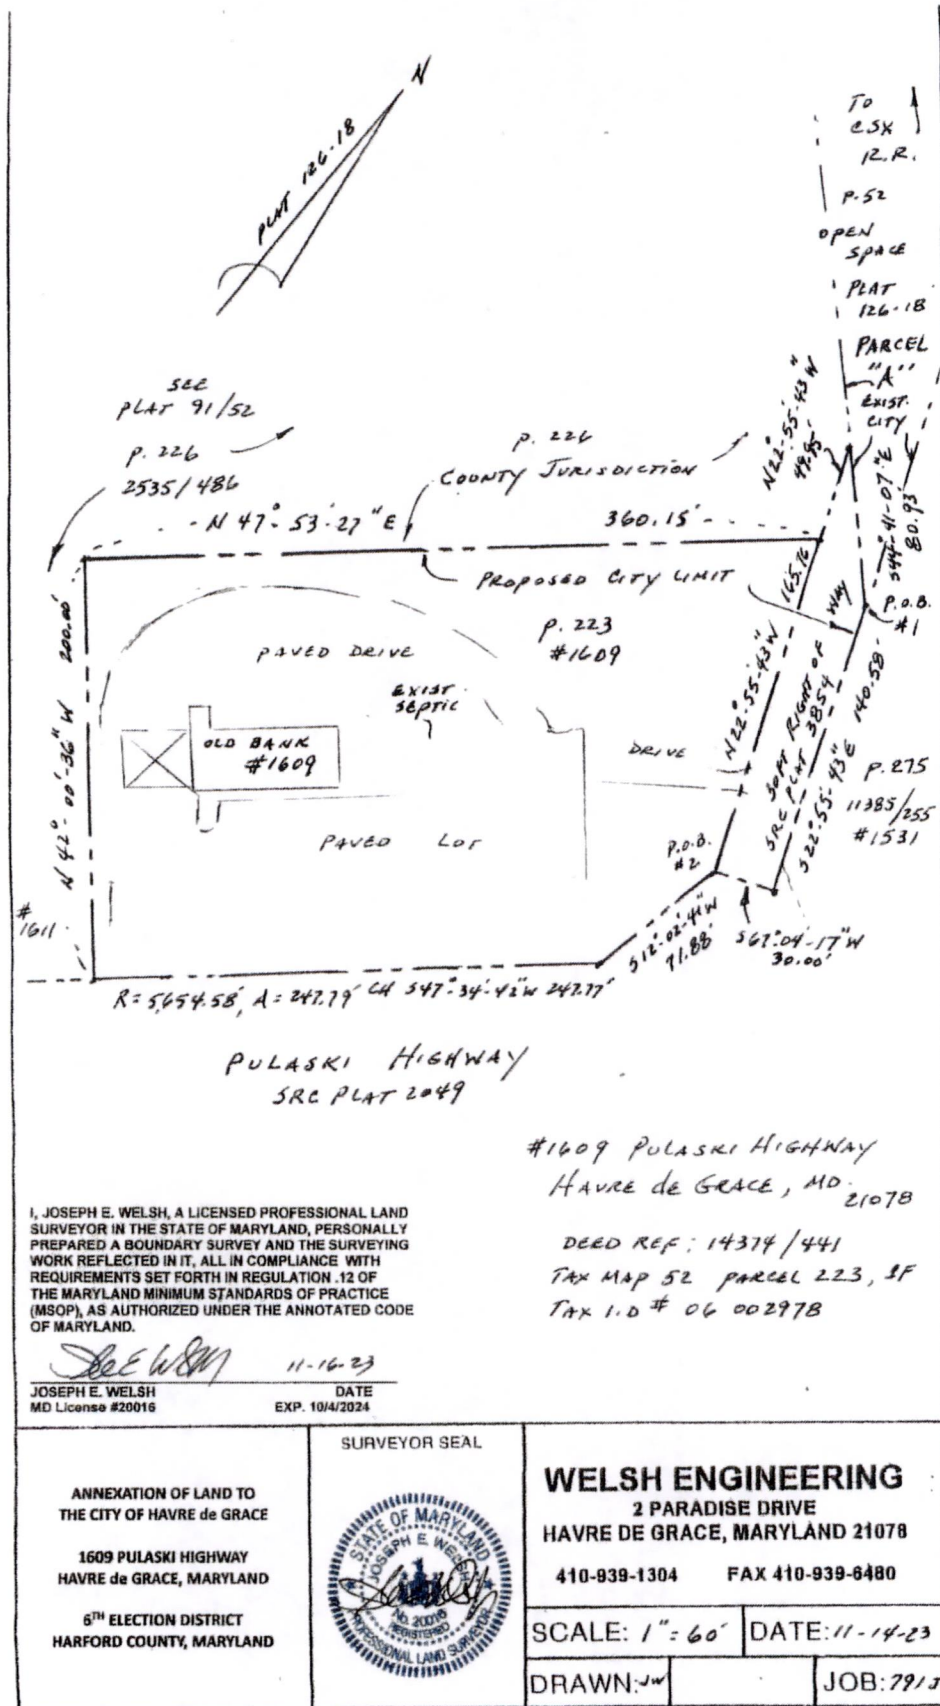 N
PLAT 126-18
TO
CSX
R.R.
P. 52
OPEN
SPACE
PLAT
126-18
PARCEL
"A"
EXIST.
CITY
SEE
PLAT 91/52
P. 226
2535/486
P. 226
COUNTY JURISDICTION
N22°-55'-43"W
49.95'
S44°-41'-07"E
80.93'
N 47°-53'-27"E
360.15'
PROPOSED CITY LIMIT
165.76
P.O.B.
#1
N 42°-00'-36" W 200.00'
PAVED DRIVE
P. 223
#1609
EXIST.
SEPTIC
OLD BANK
#1609
DRIVE
N22°-55'-43"W
30FT RIGHT OF WAY
SRC PLAT 3854
S22°-55'-43"E 140.58'
P. 275
11385/255
#1531
PAVED LOT
P.O.B.
#2
#
1611
S12°-02'-41"W
71.88'
S67°-04'-17"W
30.00'
R = 5,654.58', A = 247.79' CH S47°-34'-42"W 247.77'
PULASKI HIGHWAY
SRC PLAT 2049
#1609 PULASKI HIGHWAY
HAVRE de GRACE, MD.
21078
DEED REF: 14374/441
TAX MAP 52 PARCEL 223, 1F
TAX I.D # 06 002978
I, JOSEPH E. WELSH, A LICENSED PROFESSIONAL LAND
SURVEYOR IN THE STATE OF MARYLAND, PERSONALLY
PREPARED A BOUNDARY SURVEY AND THE SURVEYING
WORK REFLECTED IN IT, ALL IN COMPLIANCE WITH
REQUIREMENTS SET FORTH IN REGULATION .12 OF
THE MARYLAND MINIMUM STANDARDS OF PRACTICE
(MSOP), AS AUTHORIZED UNDER THE ANNOTATED CODE
OF MARYLAND.
11-16-23
JOSEPH E. WELSH DATE
MD License #20016 EXP. 10/4/2024
ANNEXATION OF LAND TO
THE CITY OF HAVRE de GRACE
1609 PULASKI HIGHWAY
HAVRE de GRACE, MARYLAND
6TH ELECTION DISTRICT
HARFORD COUNTY, MARYLAND
SURVEYOR SEAL
STATE OF MARYLAND
JOSEPH E. WELSH
No. 20016
REGISTERED
PROFESSIONAL LAND SURVEYOR
WELSH ENGINEERING
2 PARADISE DRIVE
HAVRE DE GRACE, MARYLAND 21078
410-939-1304 FAX 410-939-6480
SCALE: 1"=60'
DATE: 11-14-23
DRAWN: JW
JOB: 791